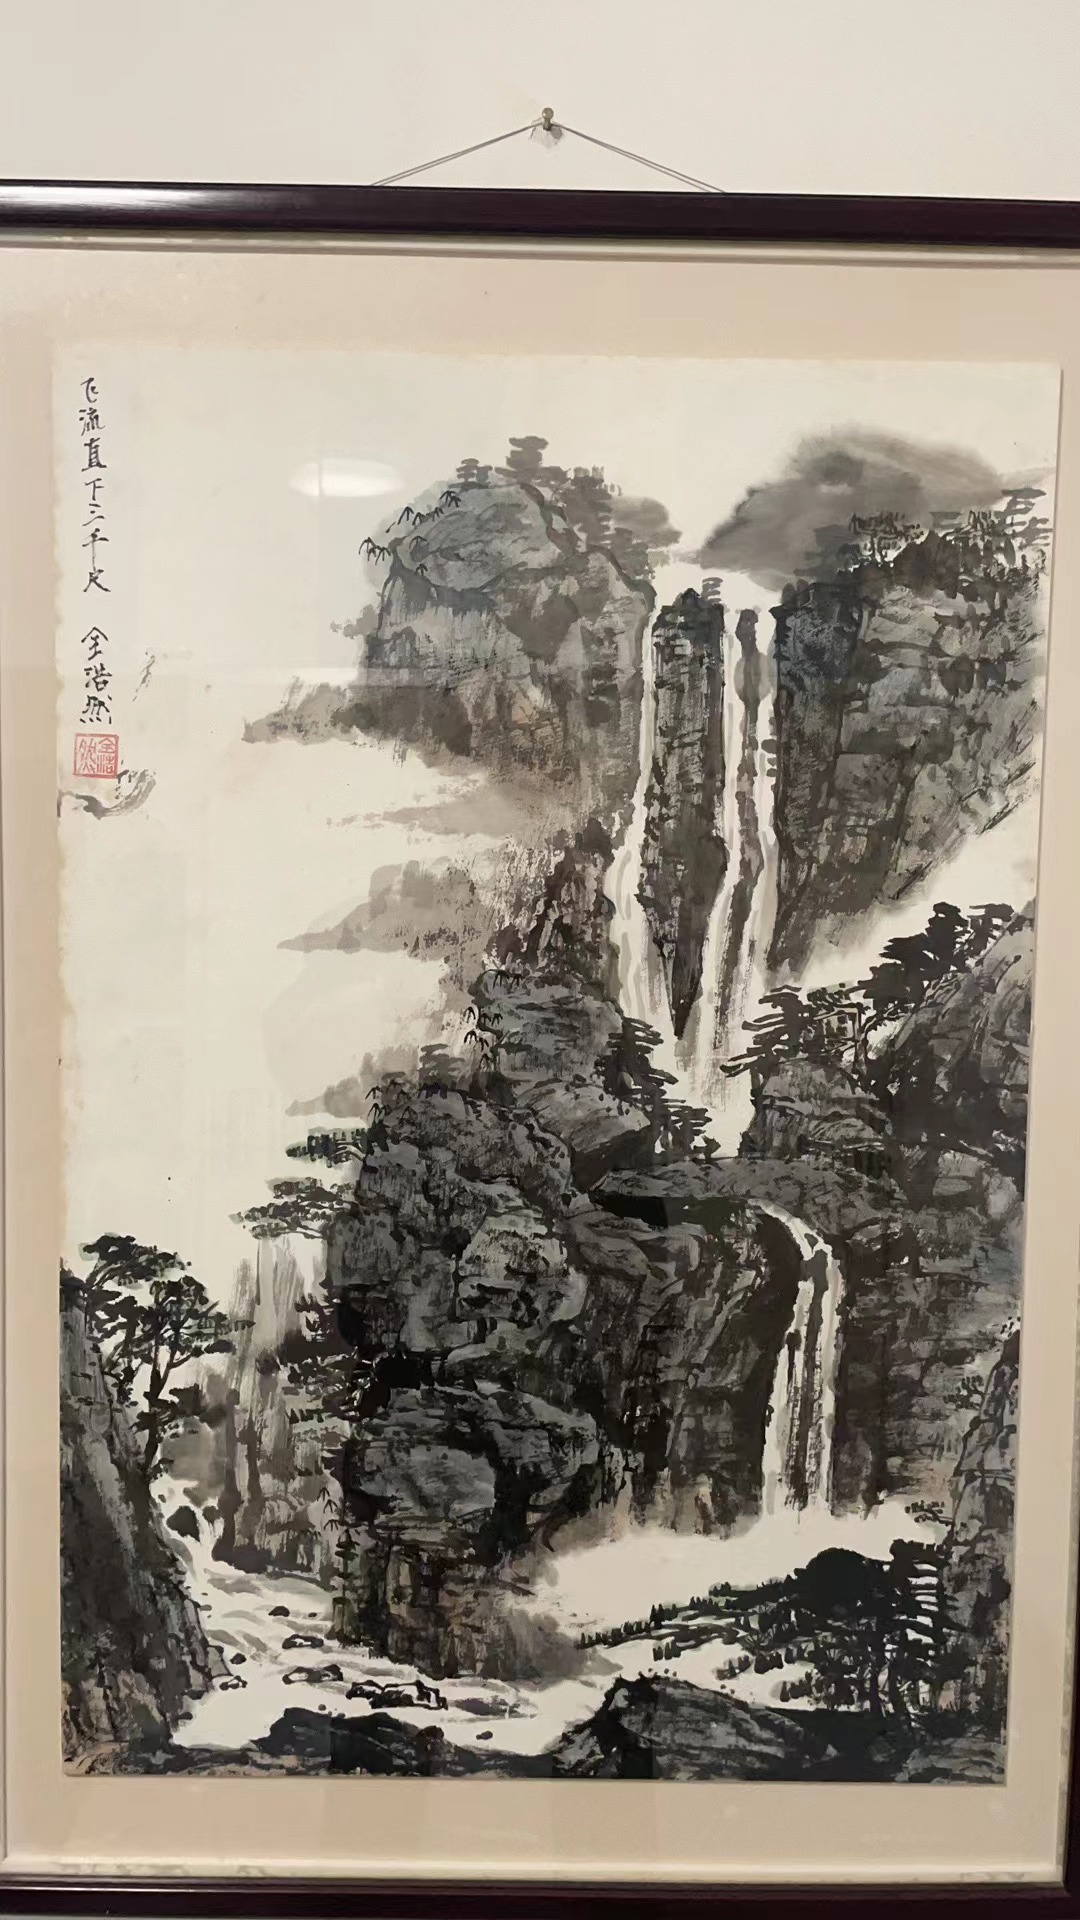 飞流直下三千尺 全浩然
全浩然